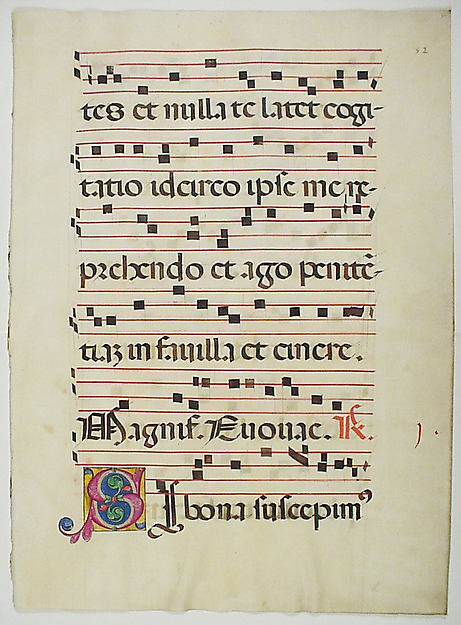 52
tes et nulla te latet cogi-
tatio idcirco ipse me re-
prehendo et ago penitē-
tiaʒ in favilla et cinere.
Magnif. Euouae. R.
SI bona suscepimꝰ